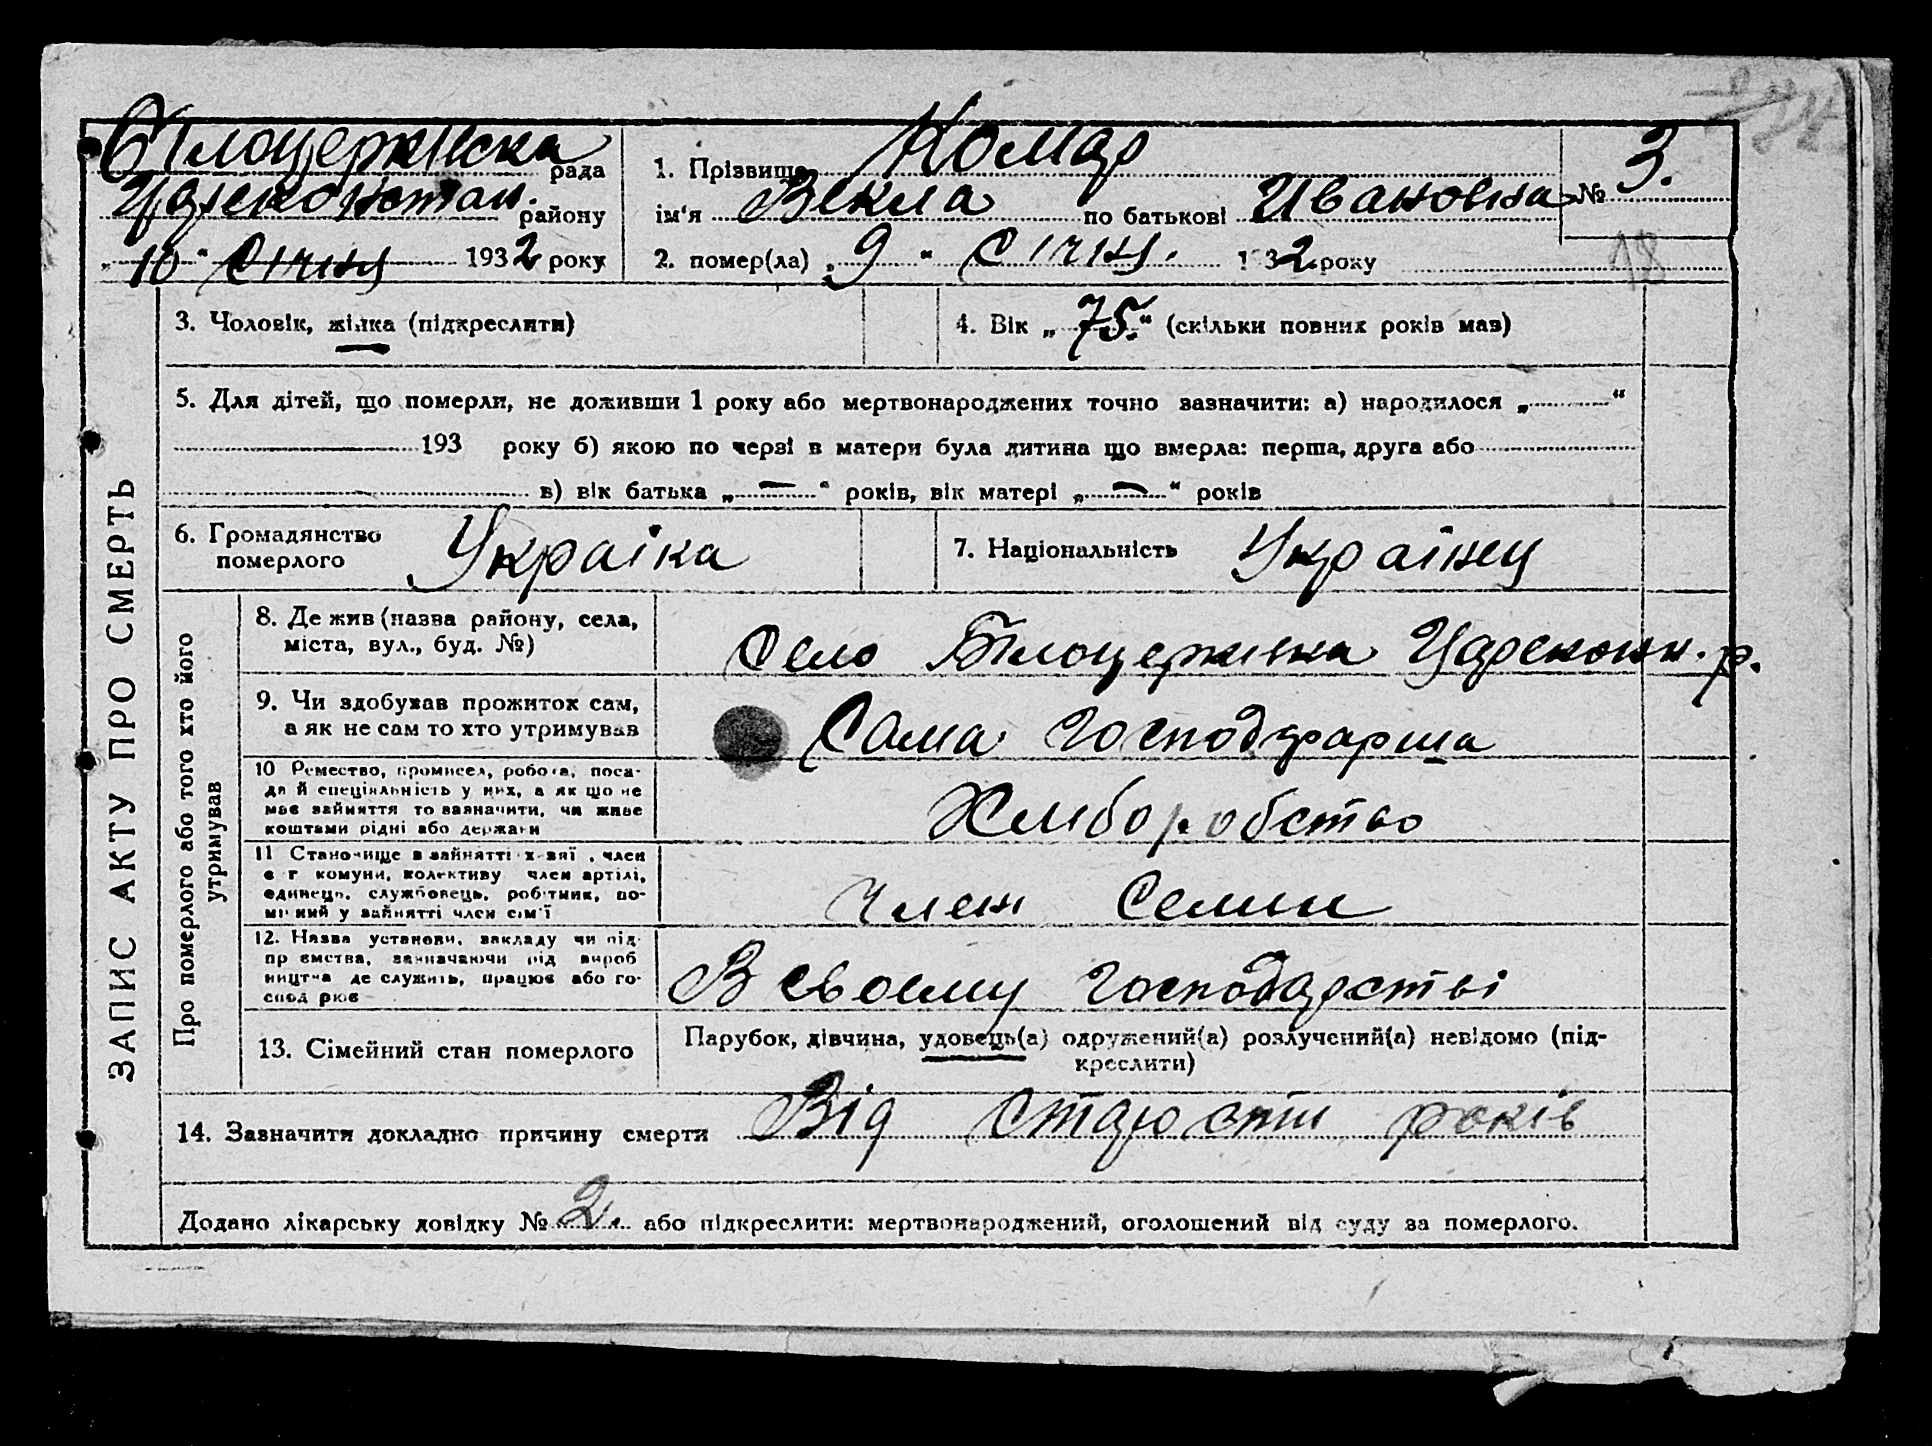 Білоцерківска рада
Цареконстан. району
„10" Січня 1932 року
1. Прізвище Комар
ім'я Векла по батькові Ивановна
№ 3.
2. помер(ла) „9" Січня. 1932 року
18
3. Чоловік, жінка (підкреслити)
4. Вік „75" (скільки повних років мав)
5. Для дітей, що померли, не доживши 1 року або мертвонароджених точно зазначити: а) народилося „ "
193 року б) якою по черзі в матери була дитина що вмерла: перша, друга або
в) вік батька „—" років, вік матері „—" років
ЗАПИС АКТУ ПРО СМЕРТЬ
6. Громадянство
померлого
Украіка
7. Національність Українец
Про померлого або того хто його
утримував
8. Де жив (назва району, села,
міста, вул., буд. №)
Село Білоцерківка Царекон. р.
9. Чи здобував прожиток сам,
а як не сам то хто утримував
Сама господарша
10 Ремество, промисел, робота, поса-
да й спеціяльність у них, а як що не
має зайняття то зазначити, чи живе
коштами рідні або держави
Хлиборобство
11 Становище в зайнятті х-зяї , член
с г комуни, колективу член артілі,
единець, службовець, робітник, по-
мічний у зайнятті член сім'ї
Член Семии
12. Назва установи, закладу чи під-
пр ємства, зазначаючи рід вироб
ництва де служить, працює або го-
спод рює
В своєму господарстві
13. Сімейний стан померлого
Парубок, дівчина, удовець(а) одружений(а) розлучений(а) невідомо (під-
креслити)
14. Зазначити докладно причину смерти Від старости років
Додано лікарську довідку № 2. або підкреслити: мертвонароджений, оголошений від суду за померлого.